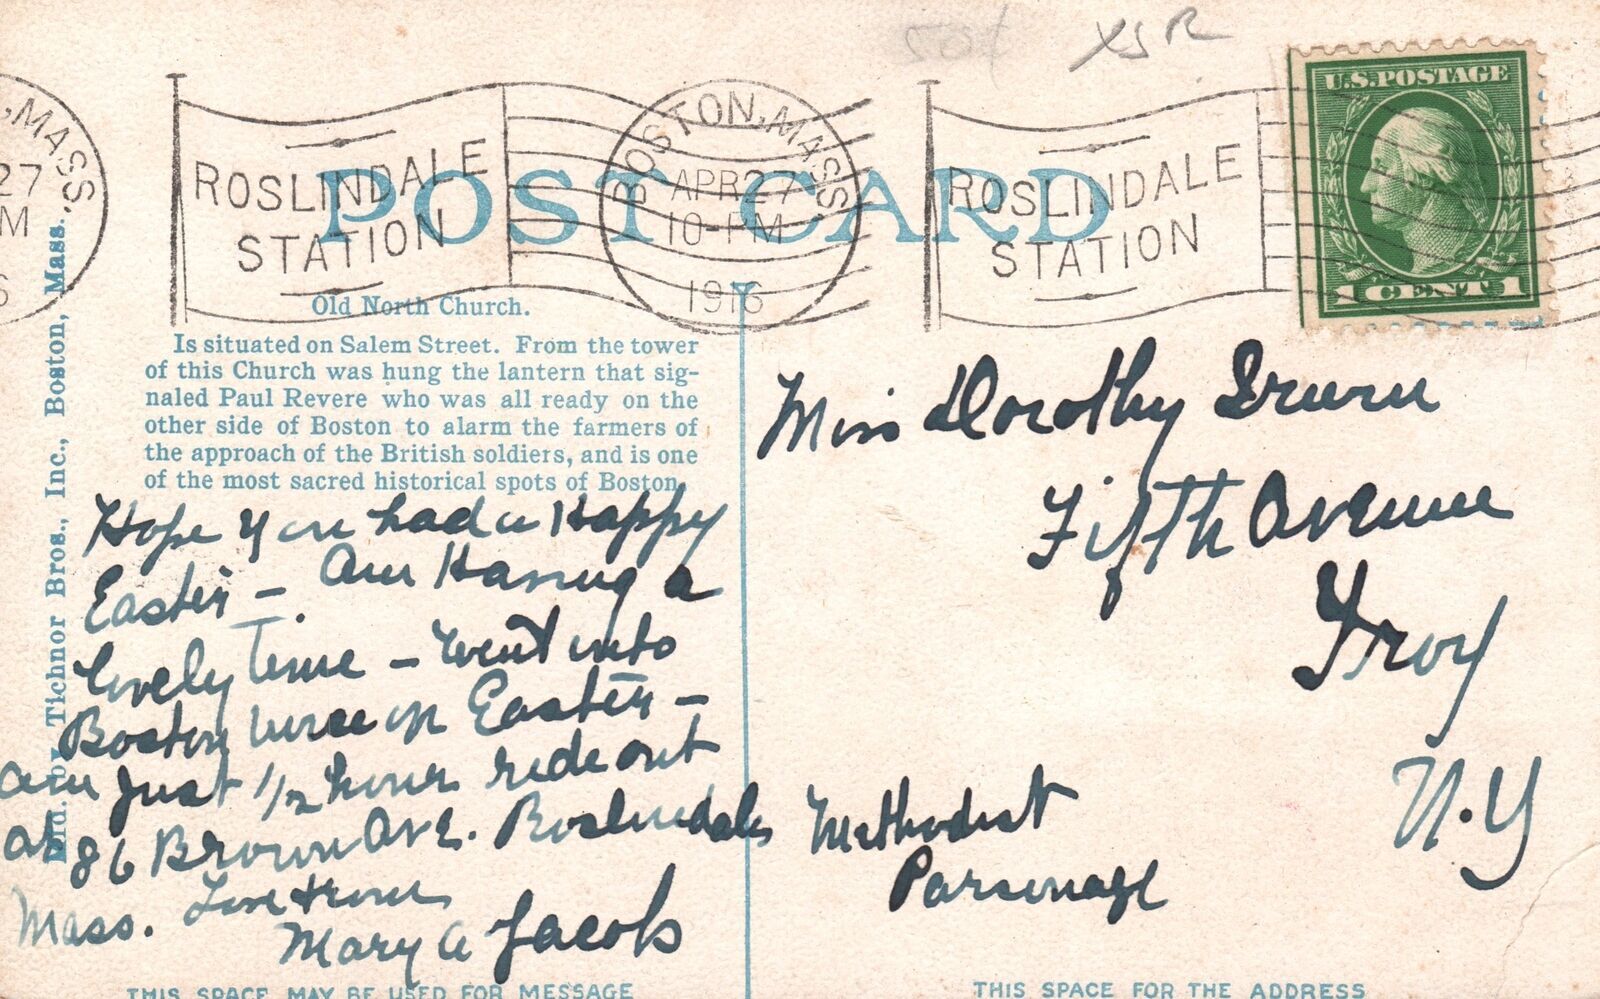 50¢ XSR
, MASS.
27
M
6
ROSLINDALE
STATION
BOSTON, MASS.
APR 27
10-PM
1916
ROSLINDALE
STATION
U.S. POSTAGE
1 CENT 1
POST CARD
Mfd. by Tichnor Bros., Inc., Boston, Mass.
Old North Church.
Is situated on Salem Street. From the tower
of this Church was hung the lantern that sig-
naled Paul Revere who was all ready on the
other side of Boston to alarm the farmers of
the approach of the British soldiers, and is one
of the most sacred historical spots of Boston.
Hope you had a Happy
Easter – Am Having a
lovely Time – went into
Boston twice on Easter –
am Just 1/2 hour ride out
at 86 Brown Ave. Roslindale
Mass. Love from
Mary A Jacobs
Miss Dorothy Irwin
Fifth Avenue
Troy
N.Y
Methodist
Parsonage
THIS SPACE MAY BE USED FOR MESSAGE
THIS SPACE FOR THE ADDRESS